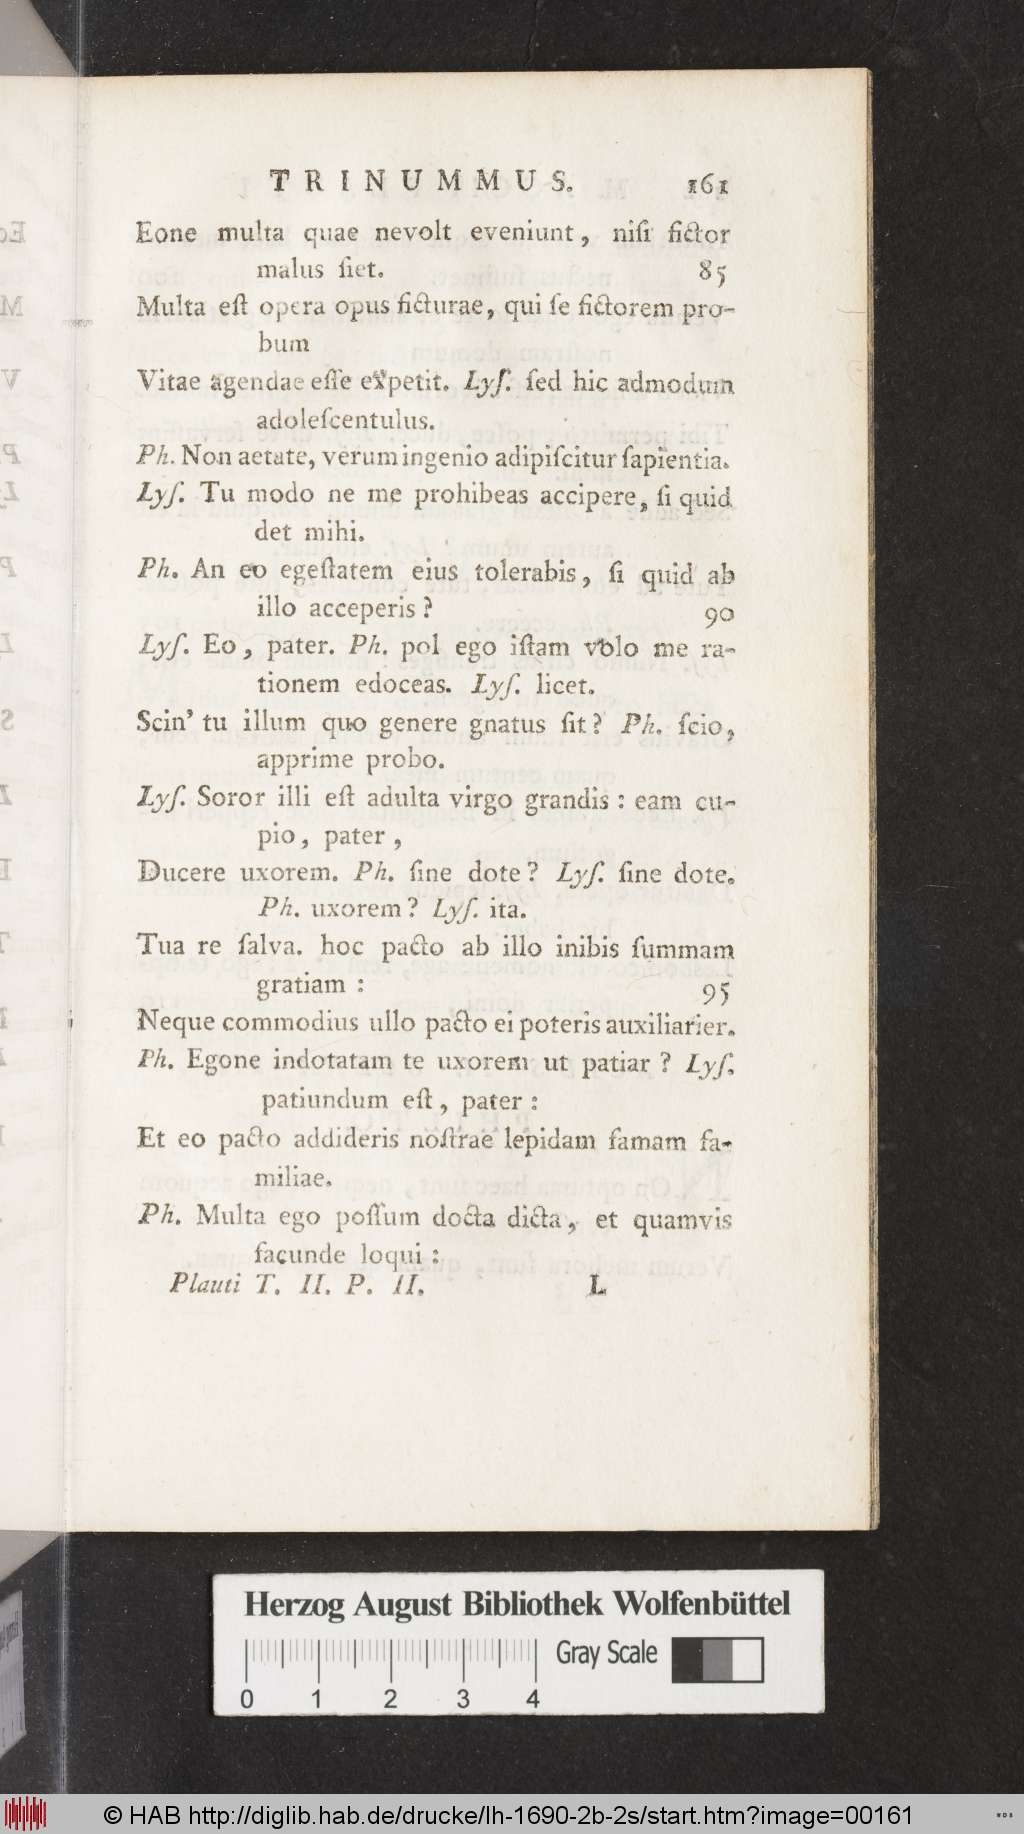 TRINUMMUS. 161
Eone multa quae nevolt eveniunt, niſi fictor
malus ſiet. 85
Multa eſt opera opus ficturae, qui ſe fictorem pro-
bum
Vitae agendae eſſe expetit. Lyſ. ſed hic admodum
adoleſcentulus.
Ph. Non aetate, verum ingenio adipiſcitur ſapientia.
Lyſ. Tu modo ne me prohibeas accipere, ſi quid
det mihi.
Ph. An eo egeſtatem eius tolerabis, ſi quid ab
illo acceperis? 90
Lyſ. Eo, pater. Ph. pol ego iſtam volo me ra-
tionem edoceas. Lyſ. licet.
Scin' tu illum quo genere gnatus ſit? Ph. ſcio,
apprime probo.
Lyſ. Soror illi eſt adulta virgo grandis: eam cu-
pio, pater,
Ducere uxorem. Ph. ſine dote? Lyſ. ſine dote.
Ph. uxorem? Lyſ. ita.
Tua re ſalva. hoc pacto ab illo inibis ſummam
gratiam: 95
Neque commodius ullo pacto ei poteris auxiliarier.
Ph. Egone indotatam te uxorem ut patiar? Lyſ.
patiundum eſt, pater:
Et eo pacto addideris noſtrae lepidam famam fa-
miliae.
Ph. Multa ego poſſum docta dicta, et quamvis
facunde loqui:
Plauti T. II. P. II. L
Herzog August Bibliothek Wolfenbüttel
Gray Scale
0 1 2 3 4
© HAB http://diglib.hab.de/drucke/lh-1690-2b-2s/start.htm?image=00161